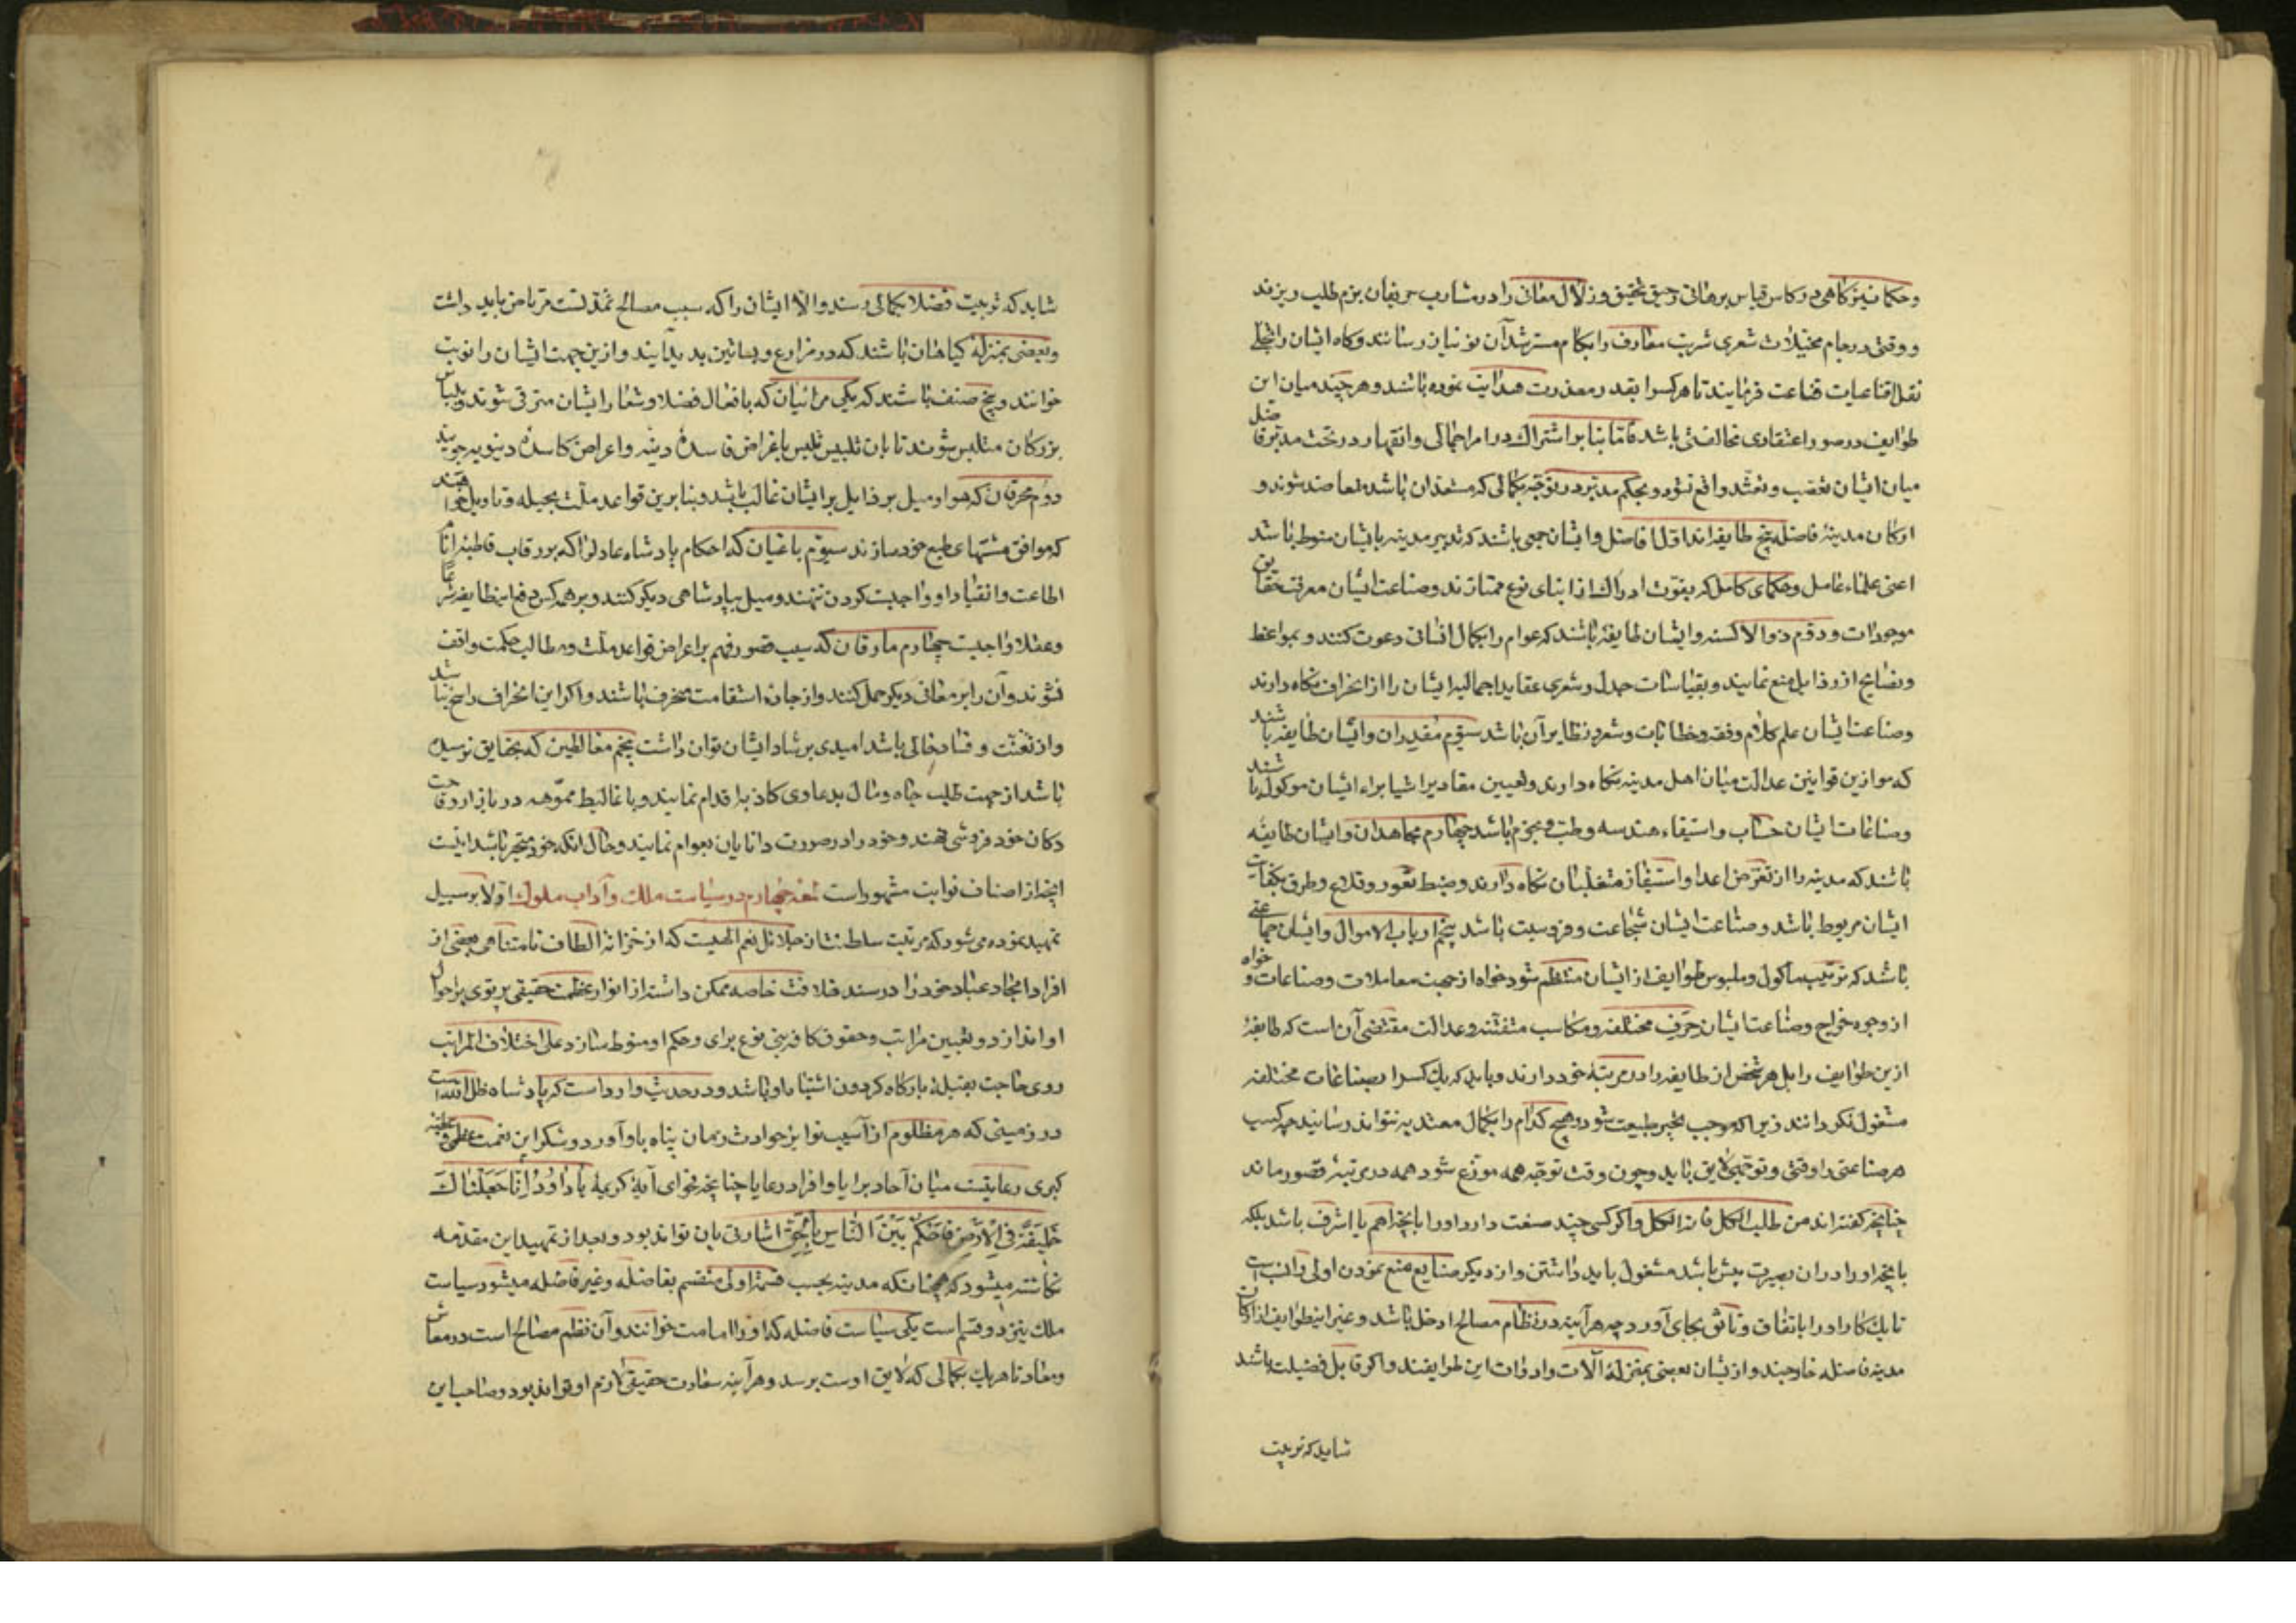 و حکما نیز کاهی در کاس قیاس برهانی رحیق تحقیق و زلال معانی را در مشارب حریفان بزم طلب ریزند
و وقتی در جام مخیلات شعری شربت معارف را بکام مسترشدان نوشیان رسانند و کاه ایشان را بتجلی
نقل اقناعیات قناعت فرمایند تا هر کس را بقدر معذرت هدایت نموده باشند و هر چند میان این
طوایف در صور اعتقادی مخالفتی باشد فامّا بنا بر اشتراك در امر اجمالی و انقهار در تحت مدبّر فاضل
میان ایشان تعصّب و تعنّد واقع نشود و بحکم مدبّر در توجّه بکمالی که مستعد آن باشند معاضد شوند و
ارکان مدینهٔ فاضله پنج طایفه اند اوّل افاضل و ایشان جمعی باشند که تدبیر مدینه بایشان منوط باشد
اعنی علماء عامل و حکمای کامل که بقوّت ادراك از ابنای نوع ممتازند و صناعت ایشان معرفت حقایق
موجودات و دوّم ذوالالسنه و ایشان طایفه باشند که عوام را بکمال انسانی دعوت کنند و بمواعظ
و نصایح از رذایل منع نمایند و بقیاسات جدل و شعری عقاید اجمالیه ایشان را از انحراف نکاه دارند
و صناعت ایشان علم کلام و فقه و خطابت و شعر و نظایر آن باشد سیّوم مقدران و ایشان طایفه باشند
که موازین قوانین عدالت میان اهل مدینه نکاه دارند و تعیین مقادیر اشیا براء ایشان موکول باشند
و صناعات ایشان حساب و استیفاء هندسه و طب و نجوم باشد چهارم مجاهدان و ایشان طایفه
باشند که مدینه را از تعرّض اعدا و استیفاز متغلبان نکاه دارند و ضبط ثغور و قلاع و طرق بکفایت
ایشان مربوط باشد و صناعت ایشان شجاعت و فروسیت باشد پنجم ارباب الاموال و ایشان جماعتی
باشند که ترتیب ماکول و ملبوس طوایف از ایشان منتظم شود خواه از جهت معاملات و صناعات و خواه
از وجوه خراج و صناعت ایشان حرف مختلفه و مکاسب متفننه و عدالت مقتضی آن است که طایفهٔ
ازین طوایف را بل هر شخص از طایفه را در مرتبهٔ خود دارند و باید که یك کس را بصناعات مختلفه
مشغول نکردانند زیرا که موجب تحیر طبیعت شود و هیچ کدام را بکمال معتد به نتواند رسانید چه کسب
هر صناعتی را وقتی و توجّهی لایق باید و چون وقت توجّه همه موزّع شود همه در مرتبهٔ قصور ماند
چنانچه گفته اند من طلب الکل فاته الکل و اکر کسی چند صنعت دارد او را بانچه اهم یا اشرف باشد بلکه
بانچه او را در ان بصیرت بیش باشد مشغول باید داشتن و از دیکر صنایع منع نمودن اولی و انسب است
تا یك کار او را باتفاق و تانّق بجای آورد چه هرآینه در نظام مصالح ادخل باشد و غیر این طوایف از ارکان
مدینه فاضله خارجند و از یشان بعضی بمنزلهٔ آلات و ادوات این طوایفند و اکر قابل فضیلت باشند
شاید که تربیت
شاید که تربیت فضلا بکمالی رسند و الّا ایشان را که سبب مصالح تمدنست مرتاض باید داشت
و بعضی بمنزلهٔ کیاهان باشند که در مزارع و بساتین پدید آیند و ازین جهت ایشان را نوبت
خوانند و پنج صنف باشند که یکی مرائیان که بافعال فضلا و شعار ایشان مترقی شوند و بلباس
بزرکان متلبس شوند تا بان تلبیس تلبس باغراض فاسدهٔ دینه و اعراض کاسدهٔ دنیویه جویند
دوم محرفان که هوا و میل بر رذایل بر ایشان غالب باشد و بنا برین قواعد ملت بحیله و تاویل خواهند
که موافق مشتهای طبع خود سازند سیوّم باغیان که احکام پادشاه عادل را که بر رقاب قاطبهٔ انام
اطاعت و انقیاد او واجبست کردن ننهند و میل بپادشاهی دیکر کنند و بر همه کس دفع اینطایفه شرعاً
و عقلا واجبست چهارم مارقان که سبب قصور فهم بر اعراض قواعد ملّت و مطالب حکمت واقف
نشوند و آن را بر معانی دیکر حمل کنند و از جادهٔ استقامت منحرف باشند و اکر این انحراف راسخ نباشد
و از تعنّت و عناد خالی باشد امیدی بر شاد ایشان توان داشت پنجم مغالطین که بحقایق نرسیده
باشند از جهت طلب جاه و مال بدعاوی کاذبه اقدام نمایند و باغالیط مموّهه در بازار وقاحت
دکان خود فروشی نهند و خود را در صورت دانایان بعوام نمایند و حال انکه خود متحیر باشند اینست
انچه از اصناف نوابت مشهور است لمعه چهارم در سیاست ملك و آداب ملوك اوّلا بر سبیل
تمهید نموده می شود که مرتبت سلطنت از جلائل نعم الهیت که از خزانهٔ الطاف نامتناهی بعضی از
افراد امجاد عباد خود را در مسند خلافت خاصه ممکن داشته از انوار عظمت حقیقی پرتوی بر احوال
او اندازد و تعیین مراتب و حقوق کافه بنی نوع برای و حکم او منوط سازد علی اختلاف المراتب
روی حاجت بقبلهٔ بارکاه کردون اشتباه او باشد و در حدیث وارد است که پادشاه ظل الله است
در زمینی که هر مظلوم از آسیب نوایب حوادث زمان پناه باو آورد و شکر این نعمت عظمی و عطیه
کبری رعایتست میان آحاد برایا و افراد رعایا چنانچه فحوای آیهٔ کریمهٔ یَا دَاوُدُ اِنَّا جَعَلْنَاكَ
خَلِیفَةً فِی الْاَرْضِ فَاحْکُمْ بَیْنَ النَّاسِ بِالْحَقِّ اشارتی بان تواند بود و بعد از تمهید این مقدمه
نکاشته میشود که همچنانکه مدینه بحسب قسمهٔ اولی منقسم بفاضله و غیر فاضله میشود سیاست
ملك نیز دو قسم است یکی سیاست فاضله که او را امامت خوانند و آن نظم مصالح است در معاش
و معاد تا هر یك بکمالی که لایق اوست برسد و هرآینه سعادت حقیقی لازم او تواند بود و صاحب این